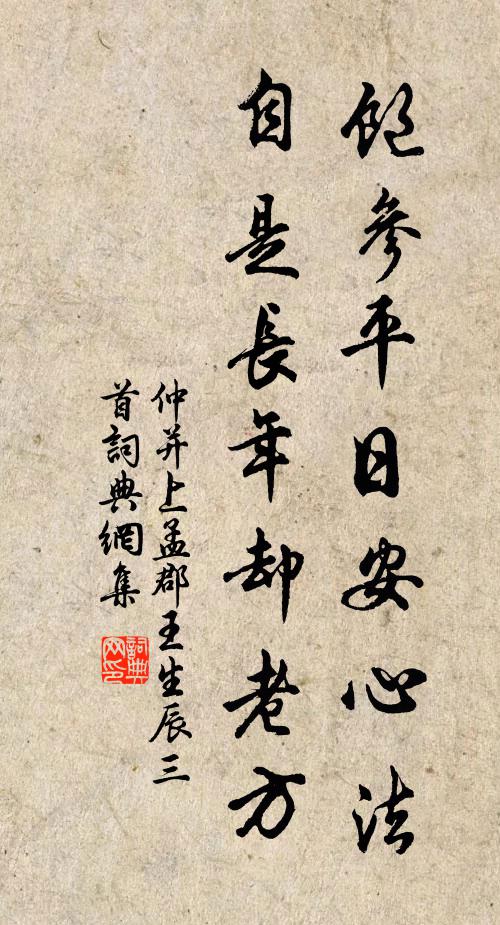 飽參平日安心法
自是長年却老方
仲并上孟郡王生辰三
首詞典網集
詞典
网印